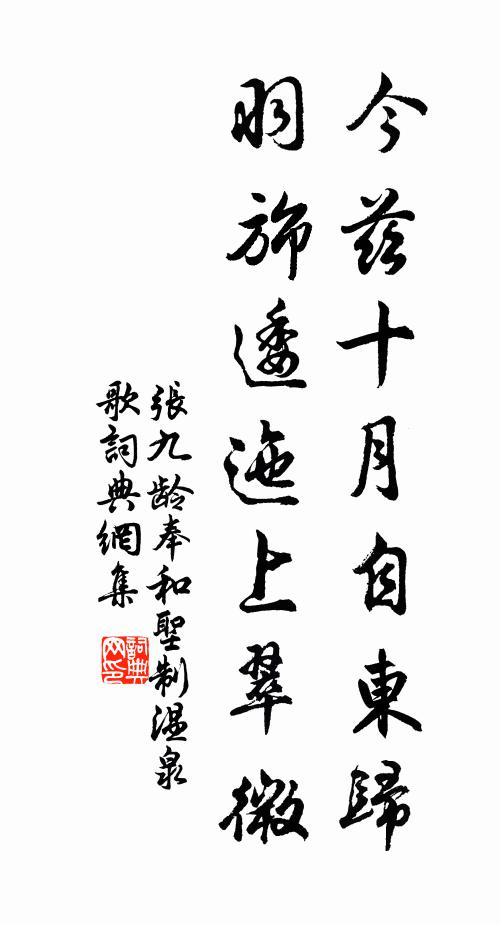 今茲十月自東歸
羽旆逶迤上翠微
張九齡奉和聖制溫泉
歌詞典網集
詞典網印